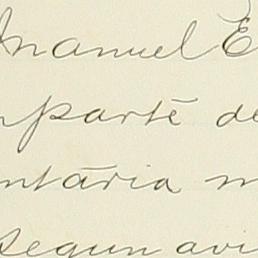 Manuel E
parte de
ntaria m
segun avi